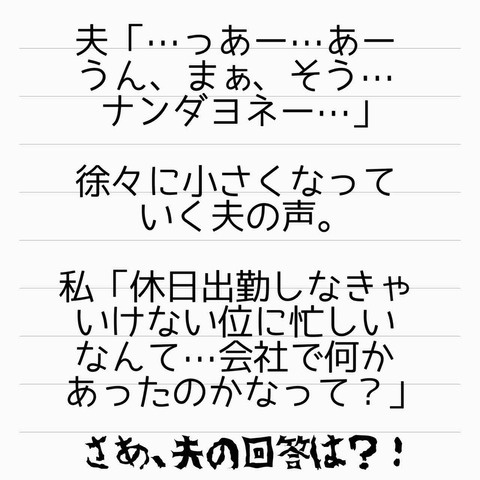 夫「…っあー…あー
うん、まぁ、そう…
ナンダヨネー…」
徐々に小さくなって
いく夫の声。
私「休日出勤しなきゃ
いけない位に忙しい
なんて…会社で何か
あったのかなって？」
さあ、夫の回答は？！